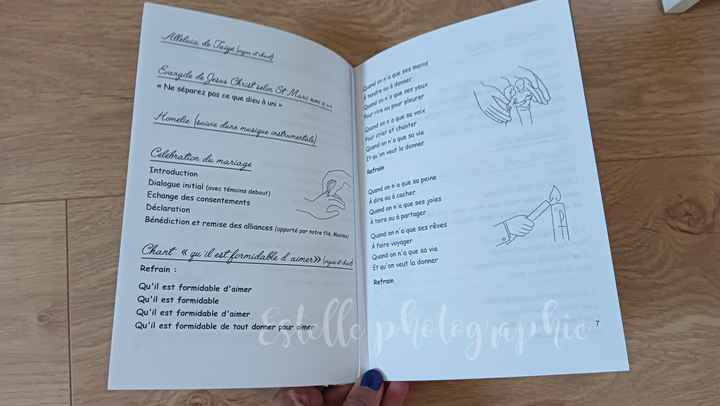 Alleluia de Taizé (orgue et chant)
Evangile de Jesus Christ selon St Marc
« Ne séparez pas ce que dieu à uni »
Homelie (suivie d'une musique instrumentale)
Célébration du mariage
Introduction
Dialogue initial (avec témoins debout)
Echange des consentements
Déclaration
Bénédiction et remise des alliances (apporté par notre fils,
Chant : « qu il est formidable d'aimer » (orgue et chant)
Refrain :
Qu'il est formidable d'aimer
Qu'il est formidable
Qu'il est formidable d'aimer
Qu'il est formidable de tout donner pour aimer
Quand on n'a que ses mains
À tendre ou à donner
Quand on n'a que ses yeux
Pour rire ou pour pleurer
Quand on n'a que sa voix
Pour crier et chanter
Quand on n'a que sa vie
Et qu'on veut la donner
Refrain
Quand on n'a que sa peine
À dire ou à cacher
Quand on n'a que ses joies
À taire ou à partager
Quand on n'a que ses rêves
À faire voyager
Quand on n'a que sa vie
Et qu'on veut la donner
Refrain
7
Estelle photographie